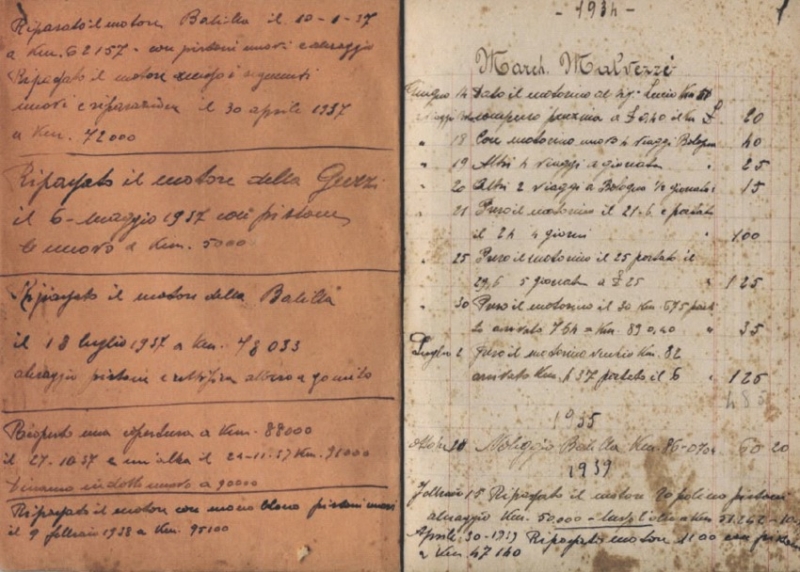 Riparato il motore Balilla il 10-1-37
a Km. 62157 - con pistoni nuovi e alesaggio
Ripagato il motore
nuovi e riparazione il 30 aprile 1937
a Km. 72000
Ripagato il motore della Guzzi
il 6 - Maggio 1937 con pistone
nuovo a Km. 5000
Ripagato il motore della Balilla
il 18 luglio 1937 a Km. 78033
alesaggio pistoni e rettifica albero a gomito
una a Km. 88000
il 27-10-37 e un'altra il 21-11-37 Km. 91000
Dinamo indotto nuovo a 90000
Ripagato il motore con mono blocco pistoni nuovi
il 9 febbraio 1938 a Km. 95100
- 1934 -
March. Malvezzi
Giugno 14 Dato il motorino al Sig. Lucio Km 51
compreso benzina a £ 0,40 il Km £ 20
" 18 Con motorino nuovo 4 viaggi Bologna 40
" 19 Altri 4 viaggi e giornata " 25
" 20 Altri 2 viaggi a Bologna ½ giornata 15
" 21 Preso il motorino il 21-6 e portato
il 24 4 giorni " 100
" 25 Preso il motorino il 25 portato il
29,6 5 giornate a £ 25 " 125
" 30 Preso il motorino il 30 Km. 675
arrivato 764 = Km. 89 0,40 " 35
Luglio 2 Preso il motorino vecchio Km. 82
arrivato Km. 437 portato il 6 " 125
485
1935
Noleggio Balilla Km. 86-0,70 60 20
1939
Febbraio 15 Ripagato il motore Topolino pistoni
alesaggio Km. 50.000 -
Aprile 30-1939 Ripagato motore 1100 con pistoni
a Km. 47140